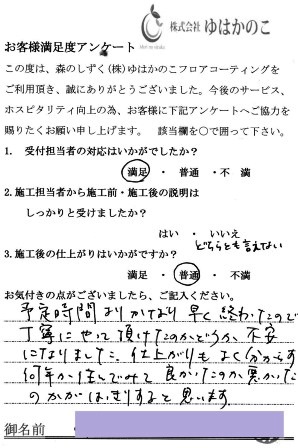 株式会社 ゆはかのこ
お客様満足度アンケート
この度は、森のしずく(株)ゆはかのこフロアコーティングを
ご利用頂き、誠にありがとうございました。今後のサービス、
ホスピタリティ向上の為、お客様に下記アンケートへご協力を
賜りたくお願い申し上げます。 該当欄を○で囲って下さい。
1. 受付担当者の対応はいかがでしたか?
満足 ・ 普通 ・ 不 満
2. 施工担当者から施工前・施工後の説明は
しっかりと受けましたか?
はい ・ いいえ
どちらとも言えない
3. 施工後の仕上がりはいかがですか?
満足 ・ 普通 ・ 不満
お気付きの点がございましたら、ご記入ください。
予定時間よりかなり早く終わったので
丁寧にやって頂けたのかどうか、不安
になりました。仕上がりもよく分からず
何年か住んでみて良かったのか悪かった
のかがはっきりすると思います。
御名前